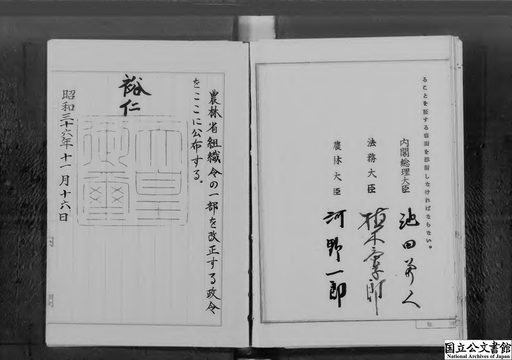 ることを証する書面を添附しなければならない。
内閣総理大臣 池田勇人
法務大臣 植木庚子郎
農林大臣 河野一郎
農林省組織令の一部を改正する政令
をここに公布する。
裕仁
天皇御璽
昭和三十六年十一月十六日
国立公文書館
National Archives of Japan